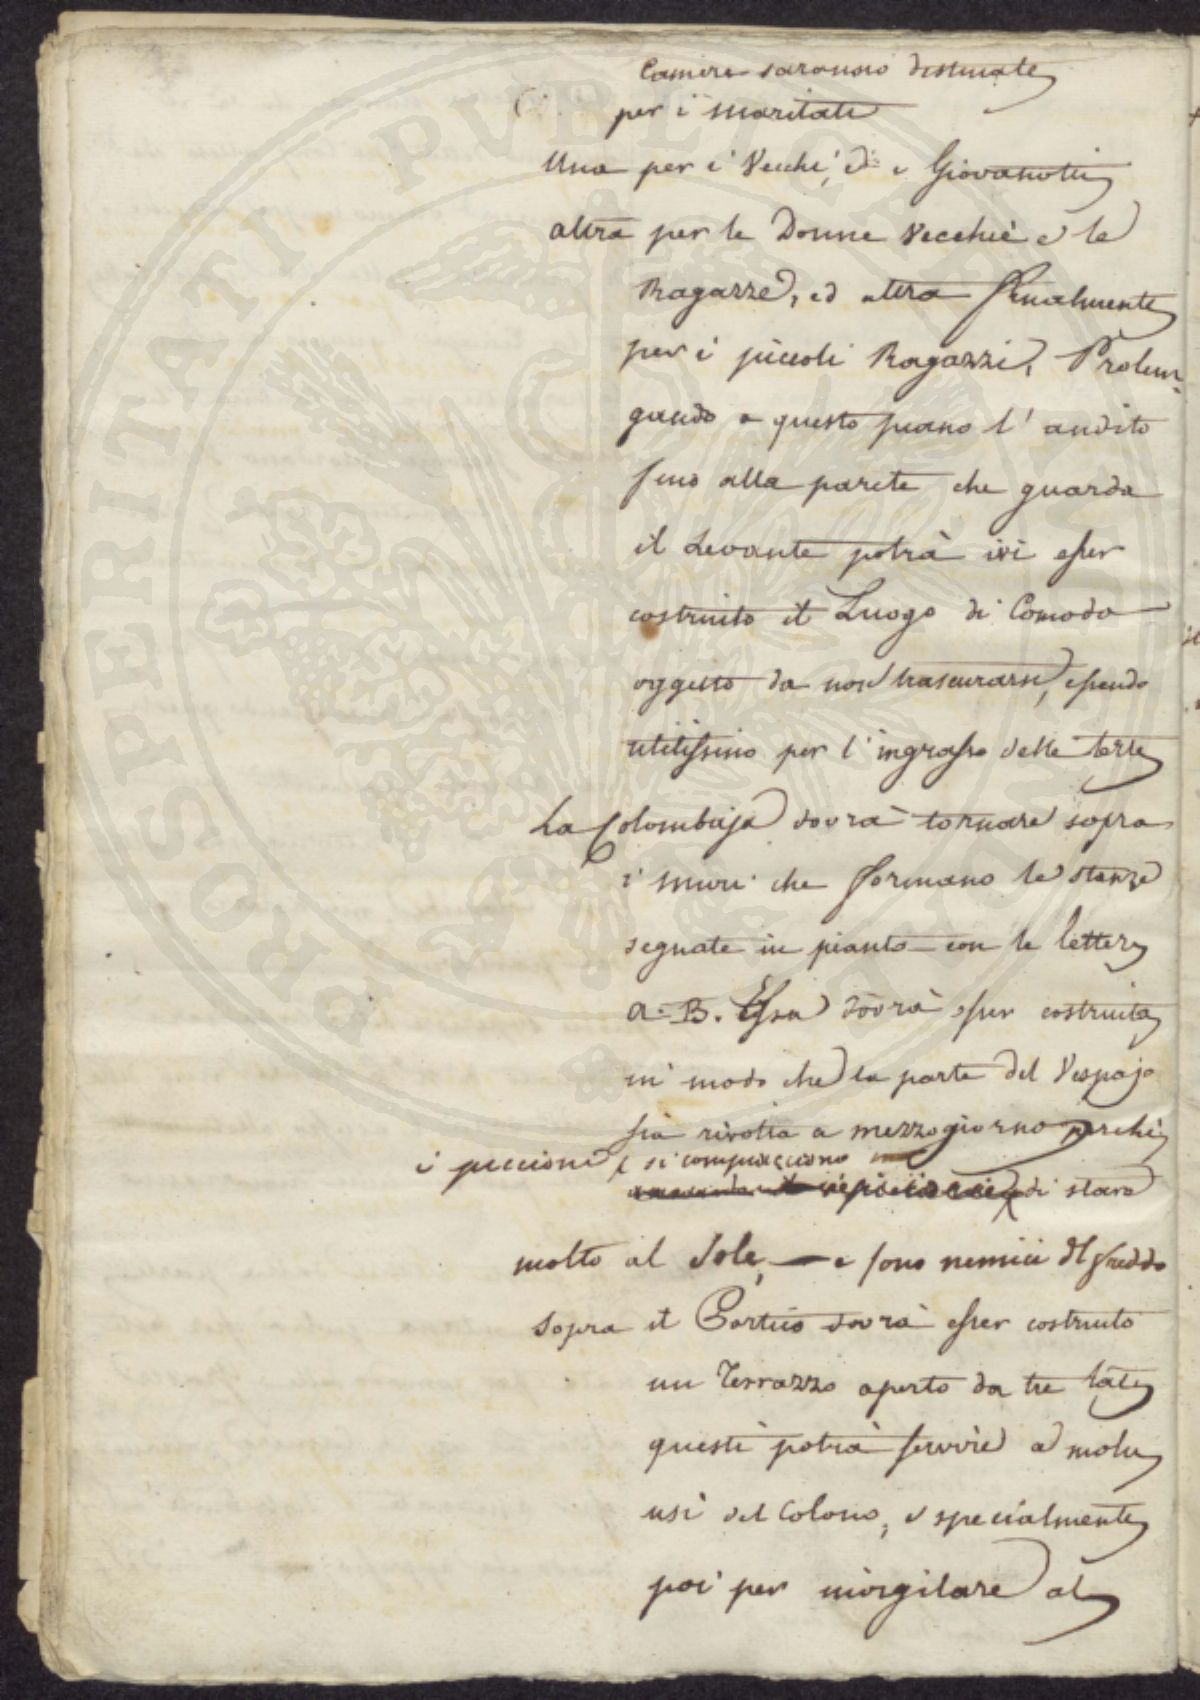 Camere saranno destinate
per i maritati
Una per i Vecchi, ed i Giovanotti
altra per le Donne Vecchie e le
Ragazze, ed altra finalmente
per i piccoli Ragazzi. Prolun-
gando a questo piano l'andito
fino alla parete che guarda
il Levante potrà ivi esser
costruito il Luogo di Comodo
oggetto da non trascurarsi, essendo
utilissimo per l'ingrasso delle terre
La Colombaja dovrà tornare sopra
i muri che formano le stanze
segnate in pianta con le lettere
A. B. Essa dovrà esser costruita
in modo che la parte del Vespajo
sia rivolta a mezzogiorno perchè
i piccioni si compiacciono
di stare
molto al Sole, e sono nemici del freddo
Sopra il Portico dovrà esser costruito
un Terrazzo aperto da tre lati
questi potrà servire a molti
usi del Colono, e specialmente
poi per invigilare al
PROSPERITATI PVBLICAE